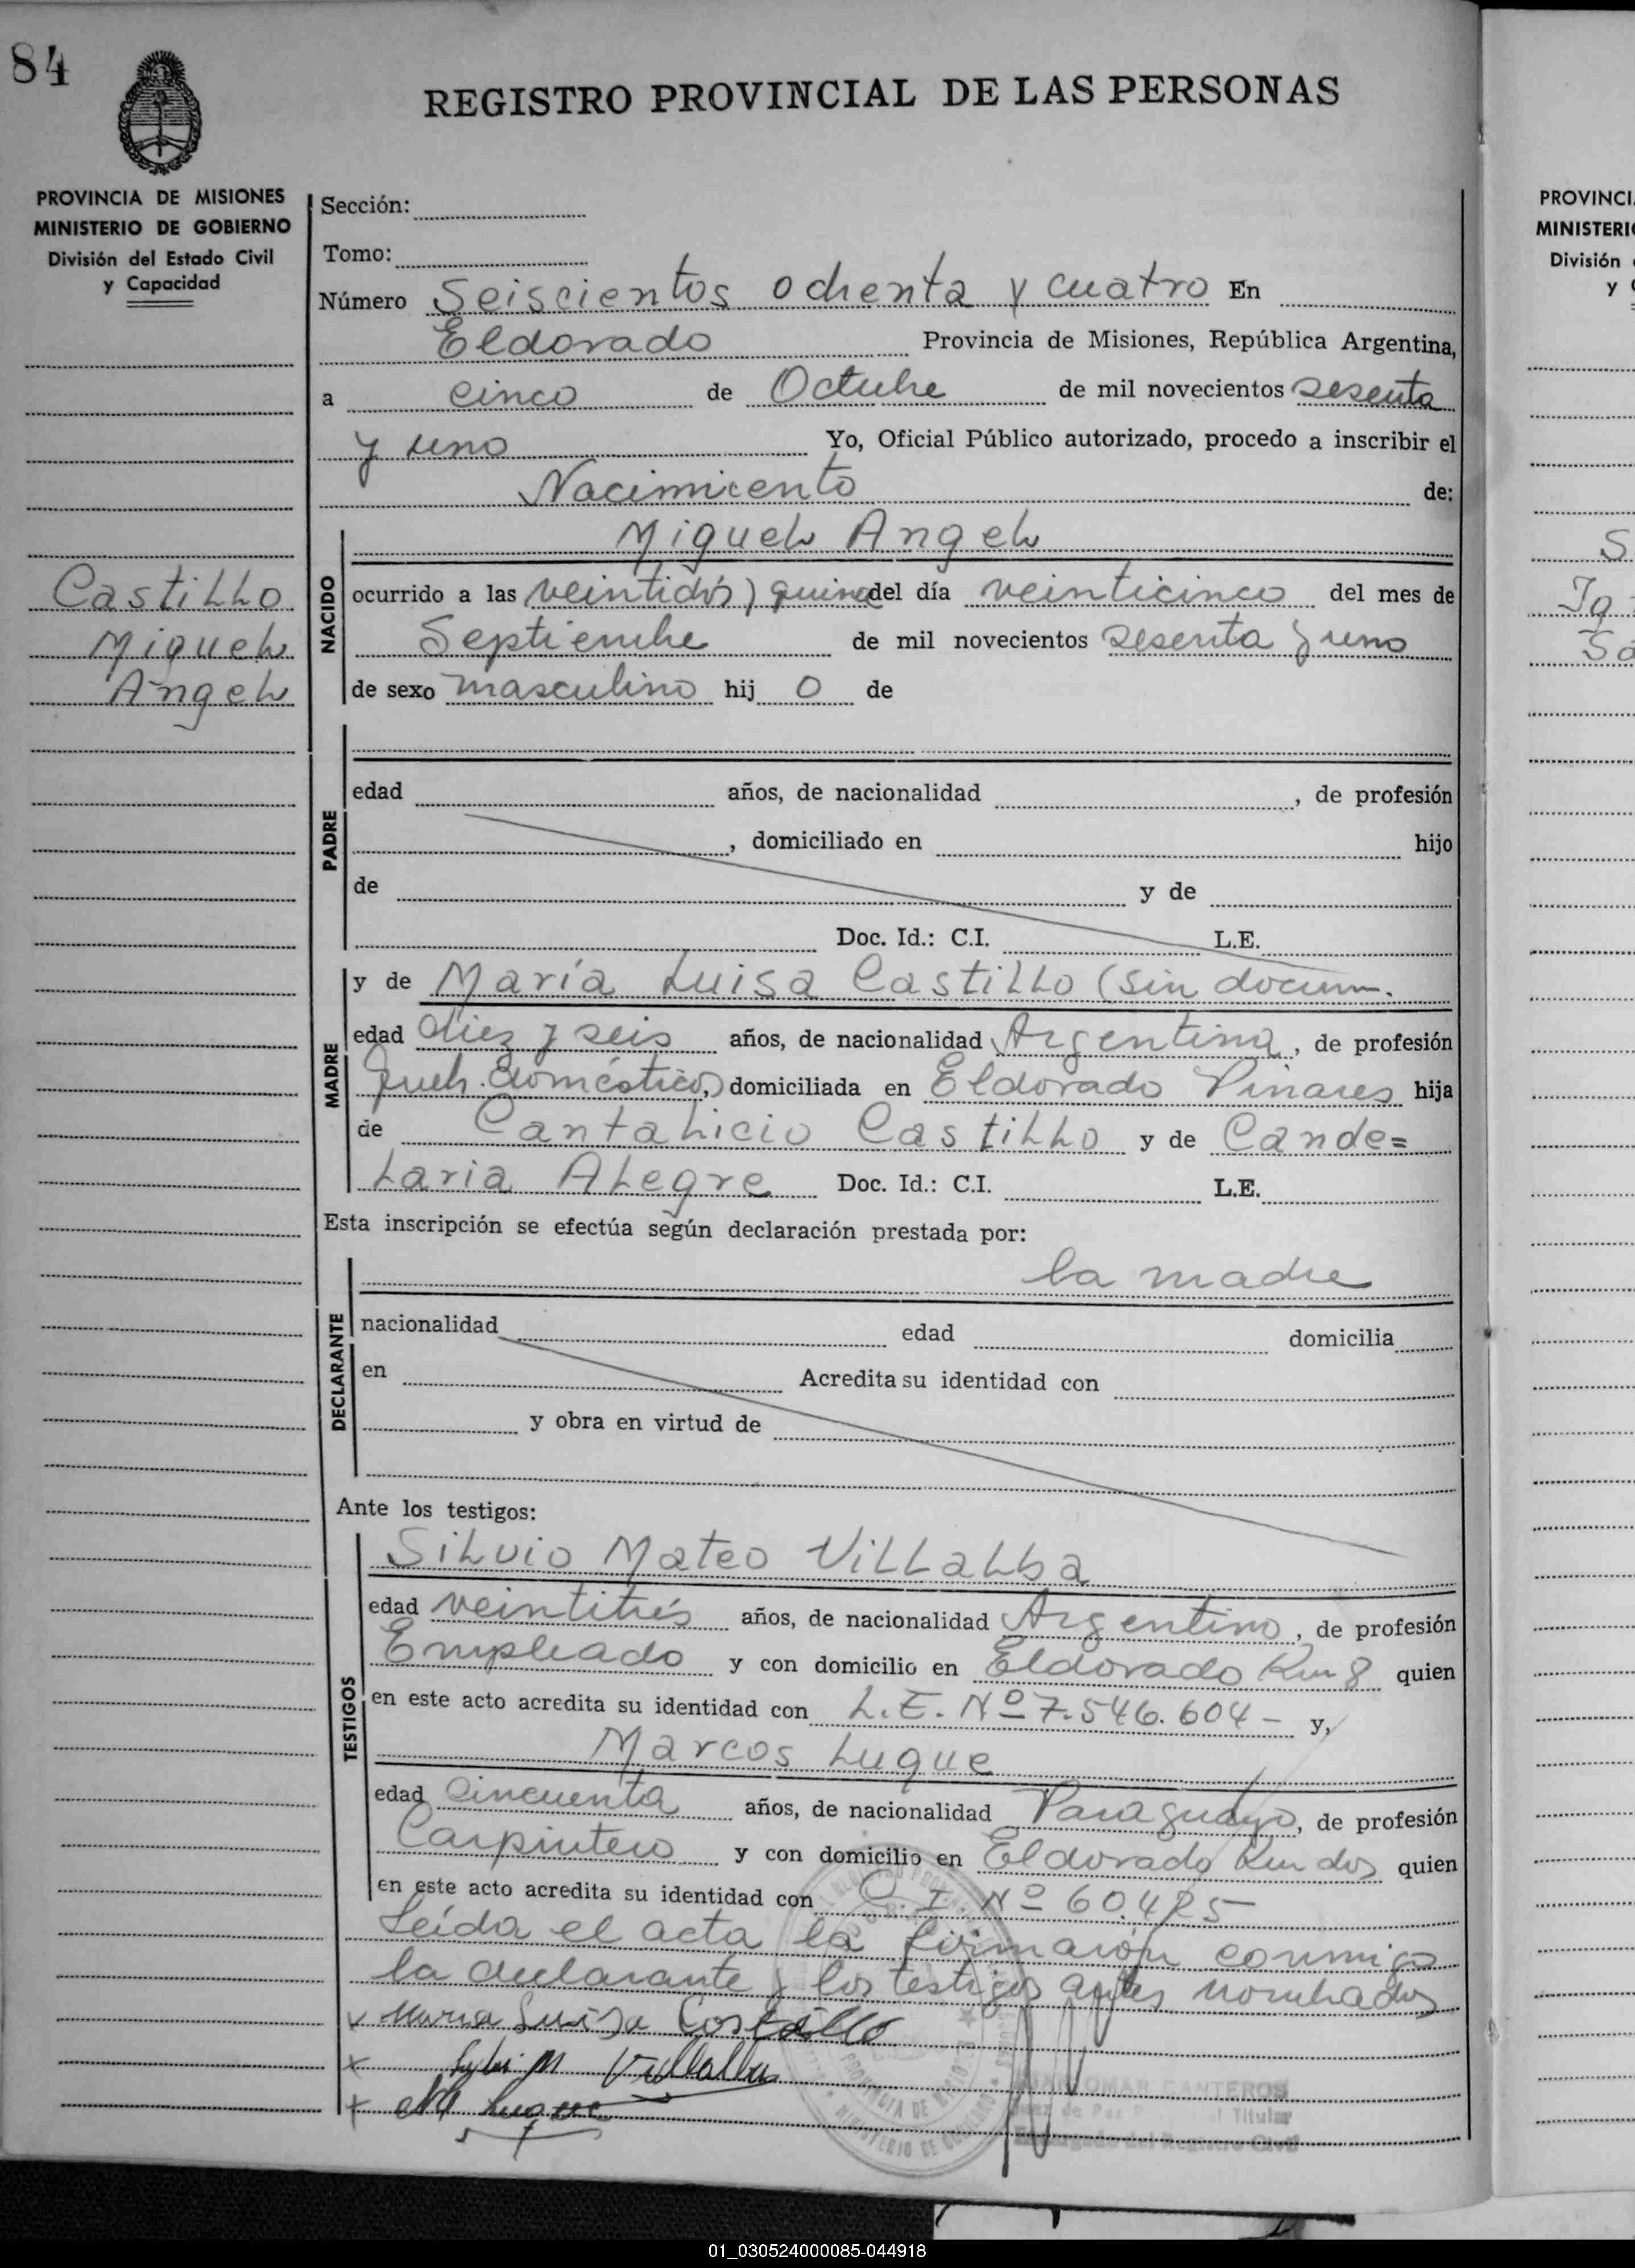 84
REGISTRO PROVINCIAL DE LAS PERSONAS
PROVINCIA DE MISIONES
MINISTERIO DE GOBIERNO
División del Estado Civil
y Capacidad
Castillo
Miguel
Angel
Sección:
Tomo:
Número Seiscientos ochenta y cuatro En
Eldorado Provincia de Misiones, República Argentina,
a cinco de Octubre de mil novecientos sesenta
y uno Yo, Oficial Público autorizado, procedo a inscribir el
Nacimiento de:
NACIDO
Miguel Angel
ocurrido a las veintidós y quince del día veinticinco del mes de
Septiembre de mil novecientos sesenta y uno
de sexo masculino hij o de
PADRE
edad años, de nacionalidad , de profesión
, domiciliado en hijo
de y de
Doc. Id.: C.I. L.E.
MADRE
y de María Luisa Castillo (sin docum.
edad diez y seis años, de nacionalidad Argentina, de profesión
queh. domésticos, domiciliada en Eldorado Pinares hija
de Cantalicio Castillo y de Cande=
laria Alegre Doc. Id.: C.I. L.E.
Esta inscripción se efectúa según declaración prestada por:
DECLARANTE
la madre
nacionalidad edad domicilia
en Acredita su identidad con
y obra en virtud de
Ante los testigos:
TESTIGOS
Silvio Mateo Villalba
edad veintitrés años, de nacionalidad Argentino, de profesión
Empleado y con domicilio en Eldorado Km 8 quien
en este acto acredita su identidad con L.E. Nº 7.546.604 - y,
Marcos Luque
edad cincuenta años, de nacionalidad Paraguayo, de profesión
Carpintero y con domicilio en Eldorado Km dos quien
en este acto acredita su identidad con C.I. Nº
Leída el acta la firmaron conmigo
la declarante y los testigos antes nombrados
Maria Luisa Castillo
M Villalba
M Luque
OMAR CANTEROS
Juez de Paz Titular
Encargado del Registro Civil
PROVINCI
MINISTERI
División
y
S
Ig
Sa
01_030524000085-044918